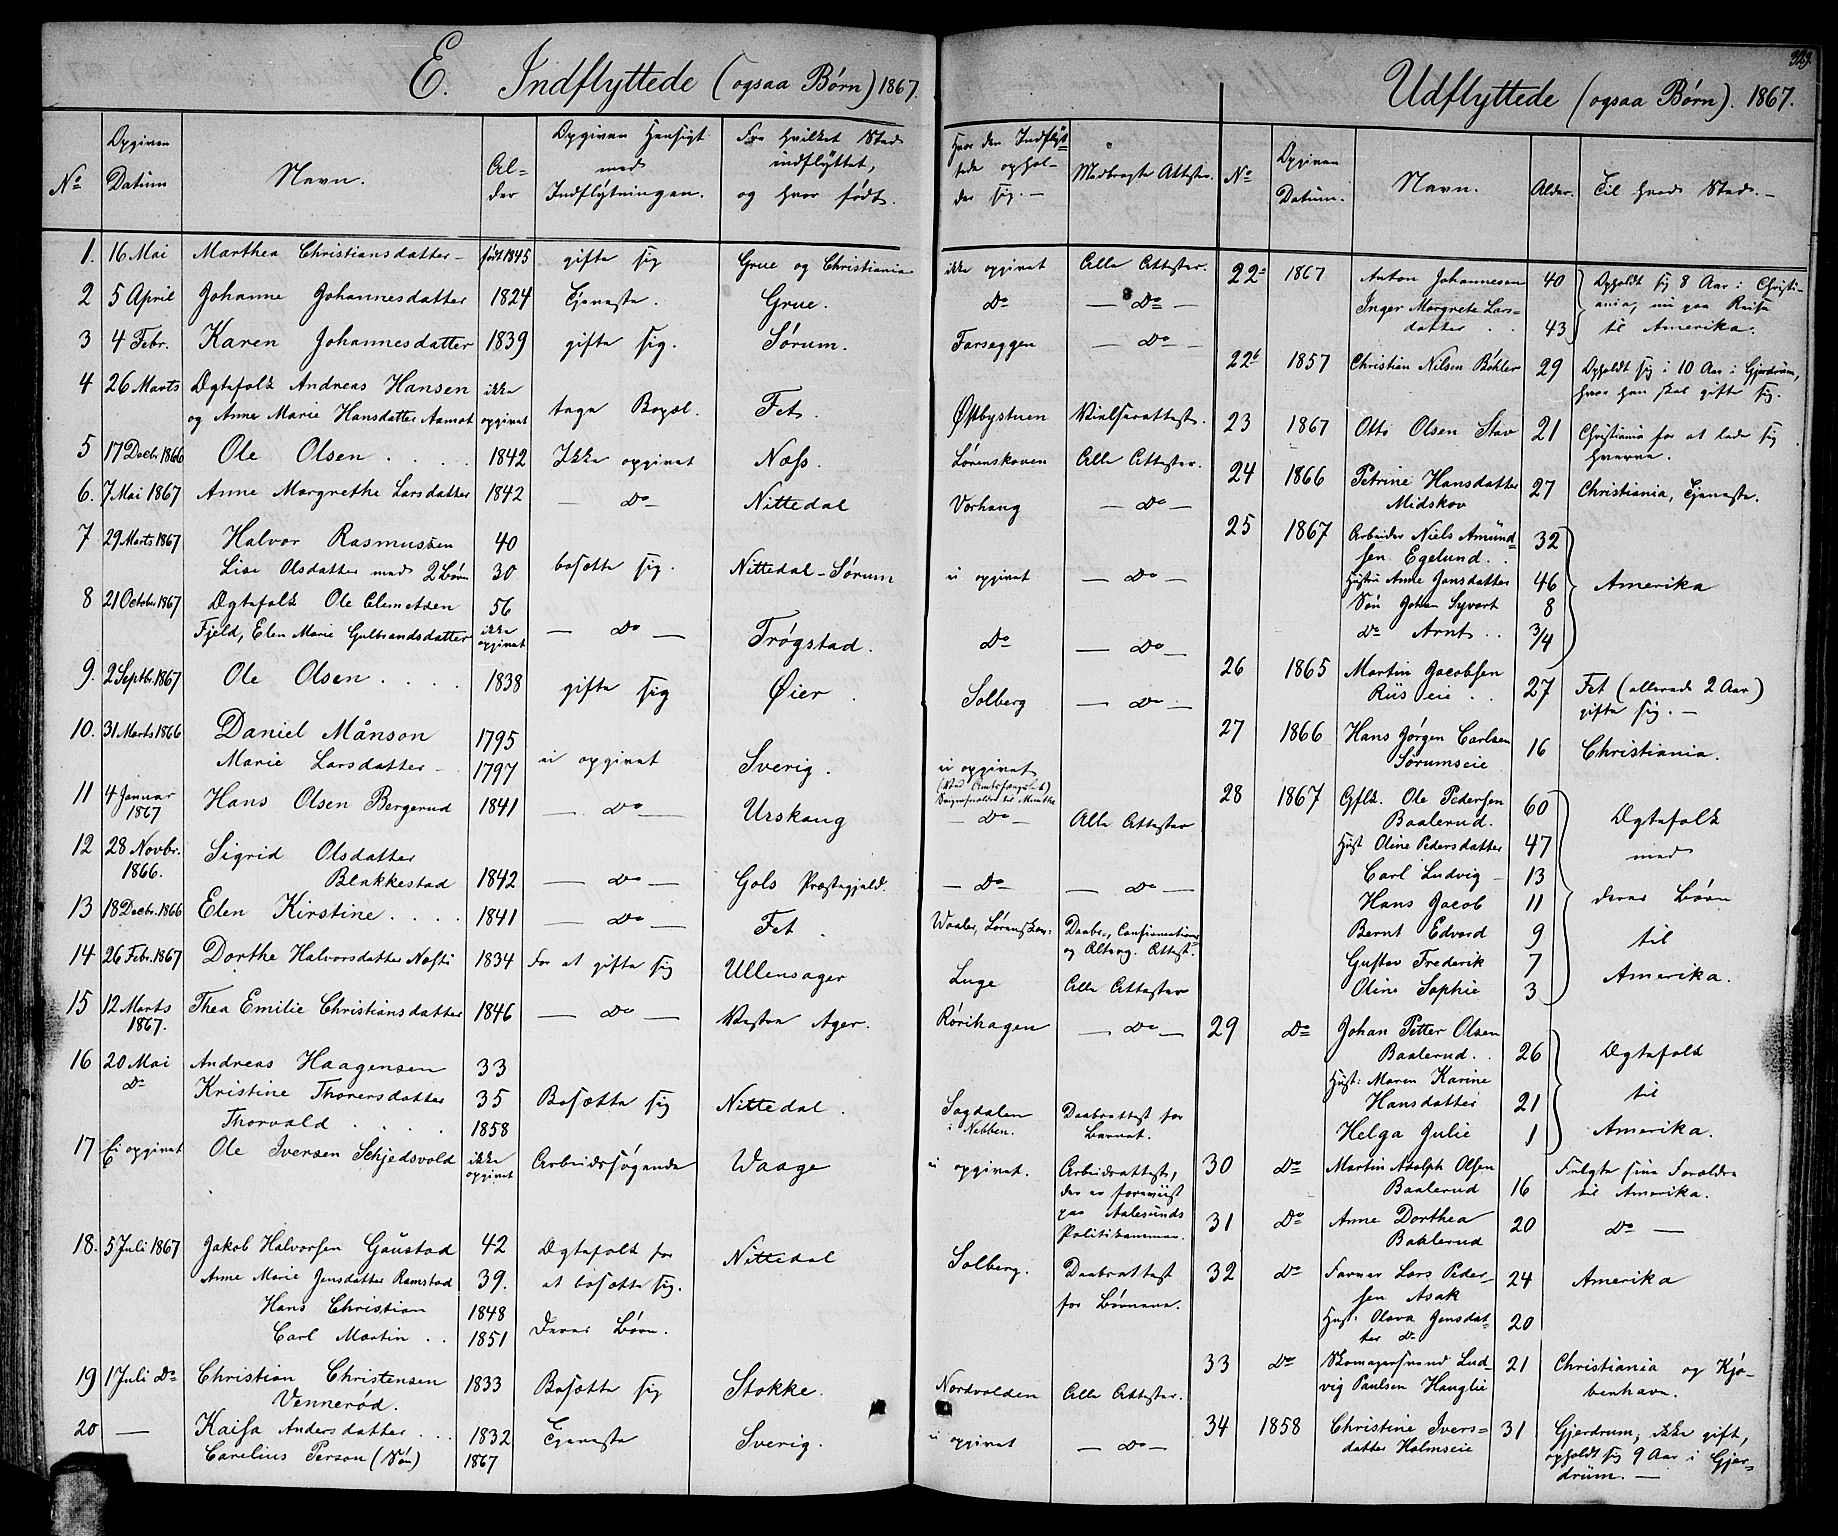 E. Indflyttede (ogsaa Børn) 1867.
No
Opgiven Datum
Navn.
Alder
Opgiven Hensigt med Indflytningen.
Fra hvilket Sted indflyttet, og hvor født.
Hvor den Indflyttede opholder sig.
Medbragte Attester.
1. 16 Mai Marthea Christiansdatter født 1845 gifte sig Grue og Christiania ikke opgivet Alle Attester.
2 5 April Johanne Johannesdatter 1824 Tjeneste. Grue. Do — Do —
3 4 Febr. Karen Johannesdatter 1839 gifte sig. Sørum. Farseggen — Do —
4 26 Marts Ægtefolk Andreas Hansen ikke
og Anne Marie Hansdatter Aamot opgivet tage Bopæl. Fet. Østbystuen Vielseattest.
5 17 Decbr 1866 Ole Olsen . . . . 1842 Ikke opgivet Næss. Lørenskoven Alle Attester.
6. 7 Mai 1867 Anne Margrethe Larsdatter 1842 — Do — Nittedal Vorhaug — Do —
7 29 Marts 1867 Halvor Rasmussen 40
Lise Olsdatter med 2 Børn 30 bosætte sig. Nittedal - Sørum ei opgivet — Do —
8 21 October 1867 Ægtefolk Ole Clemetsen 56
Fjeld, Elen Marie Gulbrandsdatter ikke opgivet — Do — Trøgstad. Do — Do —
9. 2 Septbr. 1867 Ole Olsen . . . . 1838 gifte sig Øier. Solberg — Do —
10. 31 Marts 1866 Daniel Månson 1795
Marie Larsdatter 1797 ei opgivet Sverig. ei opgivet
11 4 Januar 1867 Hans Olsen Bergerud 1841 — Do — Urskaug — Do — Alle Attester
12 28 Novbr. 1866. Sigrid Olsdatter
Blakkestad 1842 — Do — Gols Præstegjeld. — Do — — Do —
13 18 Decbr. 1866 Elen Kirstine . . . . 1841 — Do — Fet. Waaler, Lørenskov: Daabs-, Confirmations- og Alterg. Attest.
14 26 Febr. 1867 Dorthe Halvorsdatter 1834 For at gifte sig Ullensager Luge Alle Attester
15 12 Marts 1867. Thea Emilie Christiansdatter 1846 — Do — Vestre Ager. Rørihagen — Do —
16 20 Mai Do Andreas Haagensen 33
Kristine Thorersdatter 35 Bosætte sig Nittedal. Sagdalen i Nebben. Daabsattest for Barnet.
Thorvald . . . . 1858
17 Ei opgivet Ole Iversen Schjedsvold ikke opgivet Arbeidssøgende Waage ei opgivet. Arbeidsattest,
der er forevist
paa Aalesunds
Politikammer.
18. 5 Juli 1867 Jakob Halvorsen Gaustad 42 Ægtefolk for Nittedal Solberg. Daabsattest
Anne Marie Jensdatter Ramstad 39. at bosætte sig. for Børnene.
Hans Christian 1848
Carl Martin . . 1851 Deres Børn.
19 1 Juli Do Christian Christensen
Vennerød. 1833 Bosætte sig Stokke. Nordvolden Alle Attester.
20 — Kaisa Andersdatter . . . 1832 Tjeneste Sverig. ei opgivet — Do —
Carelius Person (Søn) 1867
329.
Udflyttede (ogsaa Børn). 1867.
No
Opgiven Datum.
Navn.
Alder.
Til hvad Sted. —
22a 1867 Anton Johannesen 40 Opholdt sig 8 Aar i Christi-
Inger Margrete Lars- ania, nu paa Reise
datter . . 43 til Amerika.
22b 1857 Christian Nilsen Bøhler 29 Opholdt sig i 10 Aar i Gjerdrum,
hvor han skal gifte sig.
23 1867 Otto Olsen Stav 21 Christiania for at lade sig
hverve.
24 1866 Petrine Hansdatter
Midskov 27 Christiania, Tjeneste.
25 1867 Arbeider Niels Amund-
sen Egelund . . 32
Hustru Anne Jonsdatter 46 Amerika
Søn Johan Syvert 8
Do Arnt . . 3/4
26 1865 Martin Jacobsen
Riis eie . . 27 Fet (allerede 2 Aar)
gifte sig. —
27 1866 Hans Jørgen Carlsen
Sørumseie 16 Christiania.
28 1867 Gflk. Ole Pedersen
Baalerud. 60 Ægtefolk
Hust Oline Pedersdatter 47 med
Carl Ludvig 13
Hans Jacob 11 deres Børn
Bernt Edvard 9 til
Gustav Frederik 7
Oline Sophie 3 Amerika.
29 Do Johan Petter Olsen
Baalerud. . 26 Ægtefolk
Hust: Maren Karine
Hansdatter 21 til
Helga Julie 1 Amerika.
30 Do Martin Adolph Olsen
Baalerud 16 Fulgte sine Forældre
til Amerika.
31 Do Anne Dorthea
Baalerud 20 Do —
32 Do Farver Lars Peder-
sen Asak 24 Amerika
Hust: Olava Jensdat-
ter Do 20
33 Do Skomagersvend Lud-
vig Paulsen Hauglie 21 Christiania og Kjø-
benhavn.
34 1858 Christine Ivers-
datter Holmseie 31 Gjerdrum, ikke gift,
opholdt sig 9 Aar i Gjer-
drum. —